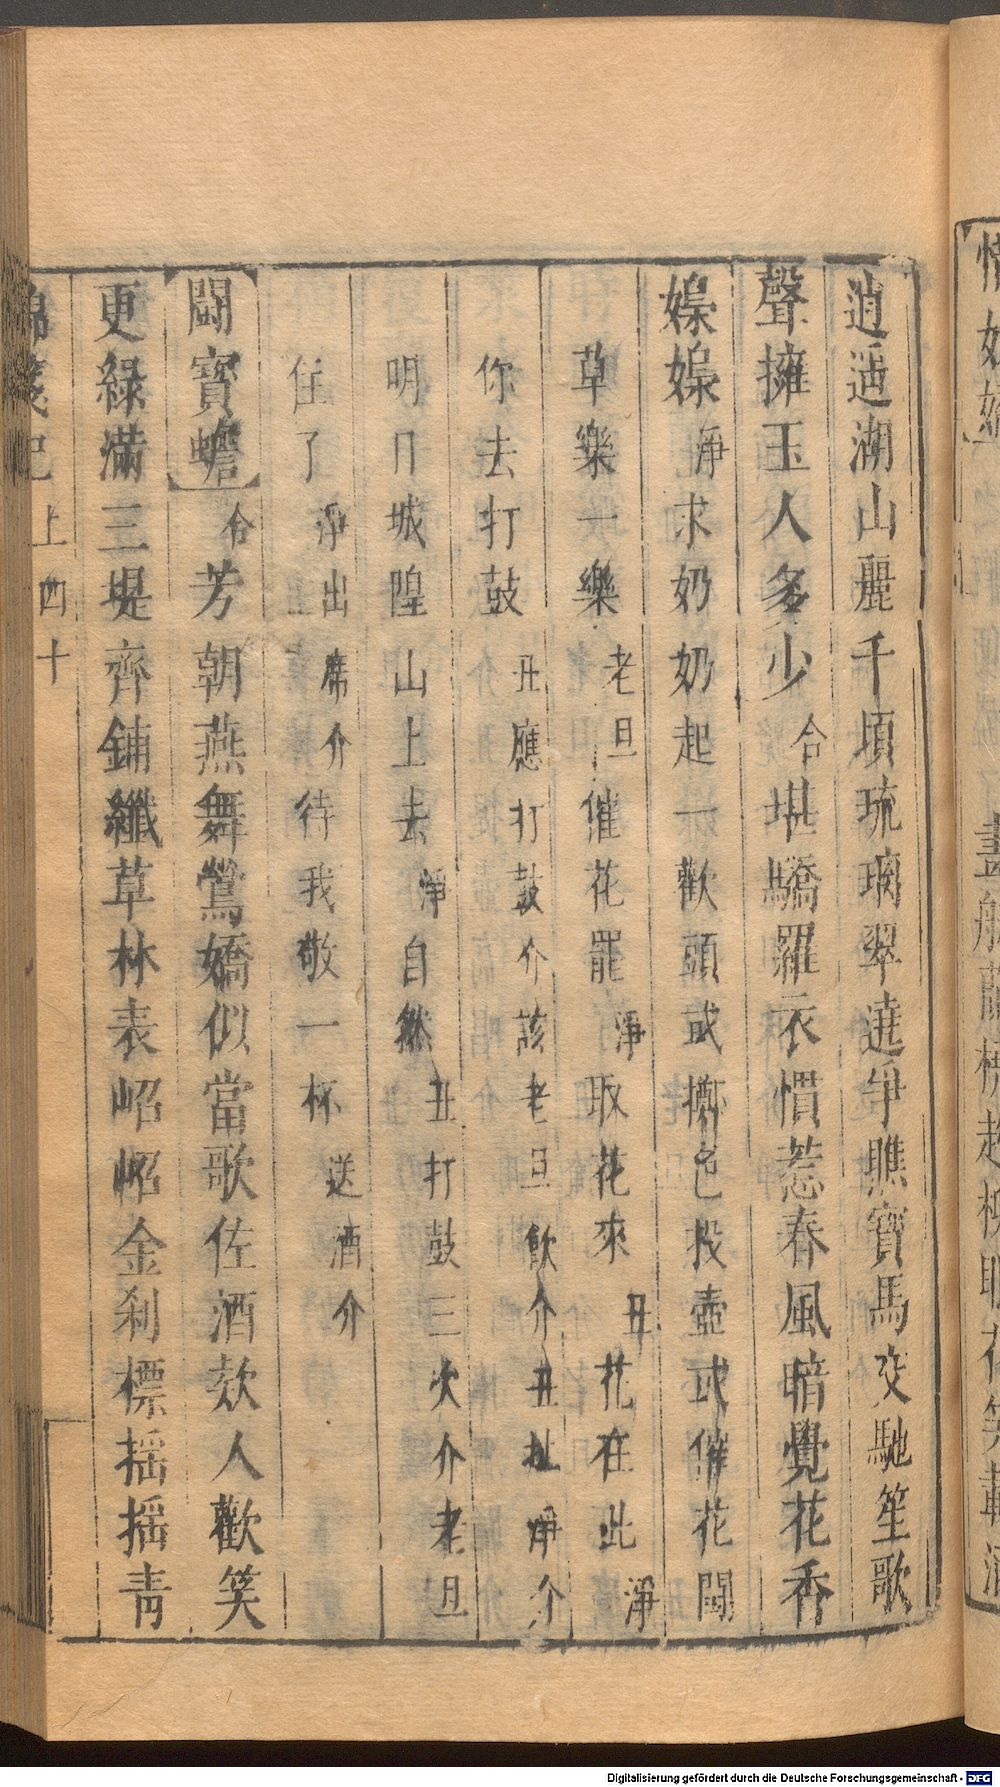 逍遥湖山麗千頃琉璃翠遶爭瞧寶馬交馳笙歌
聲擁玉人多少合堪驕羅衣慣惹春風暗覺花香
嫋嫋淨求奶奶起一歡頭或擲色投壺或催花鬪
草樂一樂老旦催花罷淨取花來丑花在此淨
你去打鼓丑應打鼓介該老旦飲介丑扯淨介
明日城隍山上去淨自然丑打鼓三次介老旦
住了淨出席介待我敬一杯送酒介
【鬪寶蟾】合芳朝燕舞鶯嬌似當歌佐酒欸人歡笑
更綠滿三堤齊鋪纖草林表岹岹金剎標搖搖青
錦箋記上四十
Digitalisierung gefördert durch die Deutsche Forschungsgemeinschaft - DFG